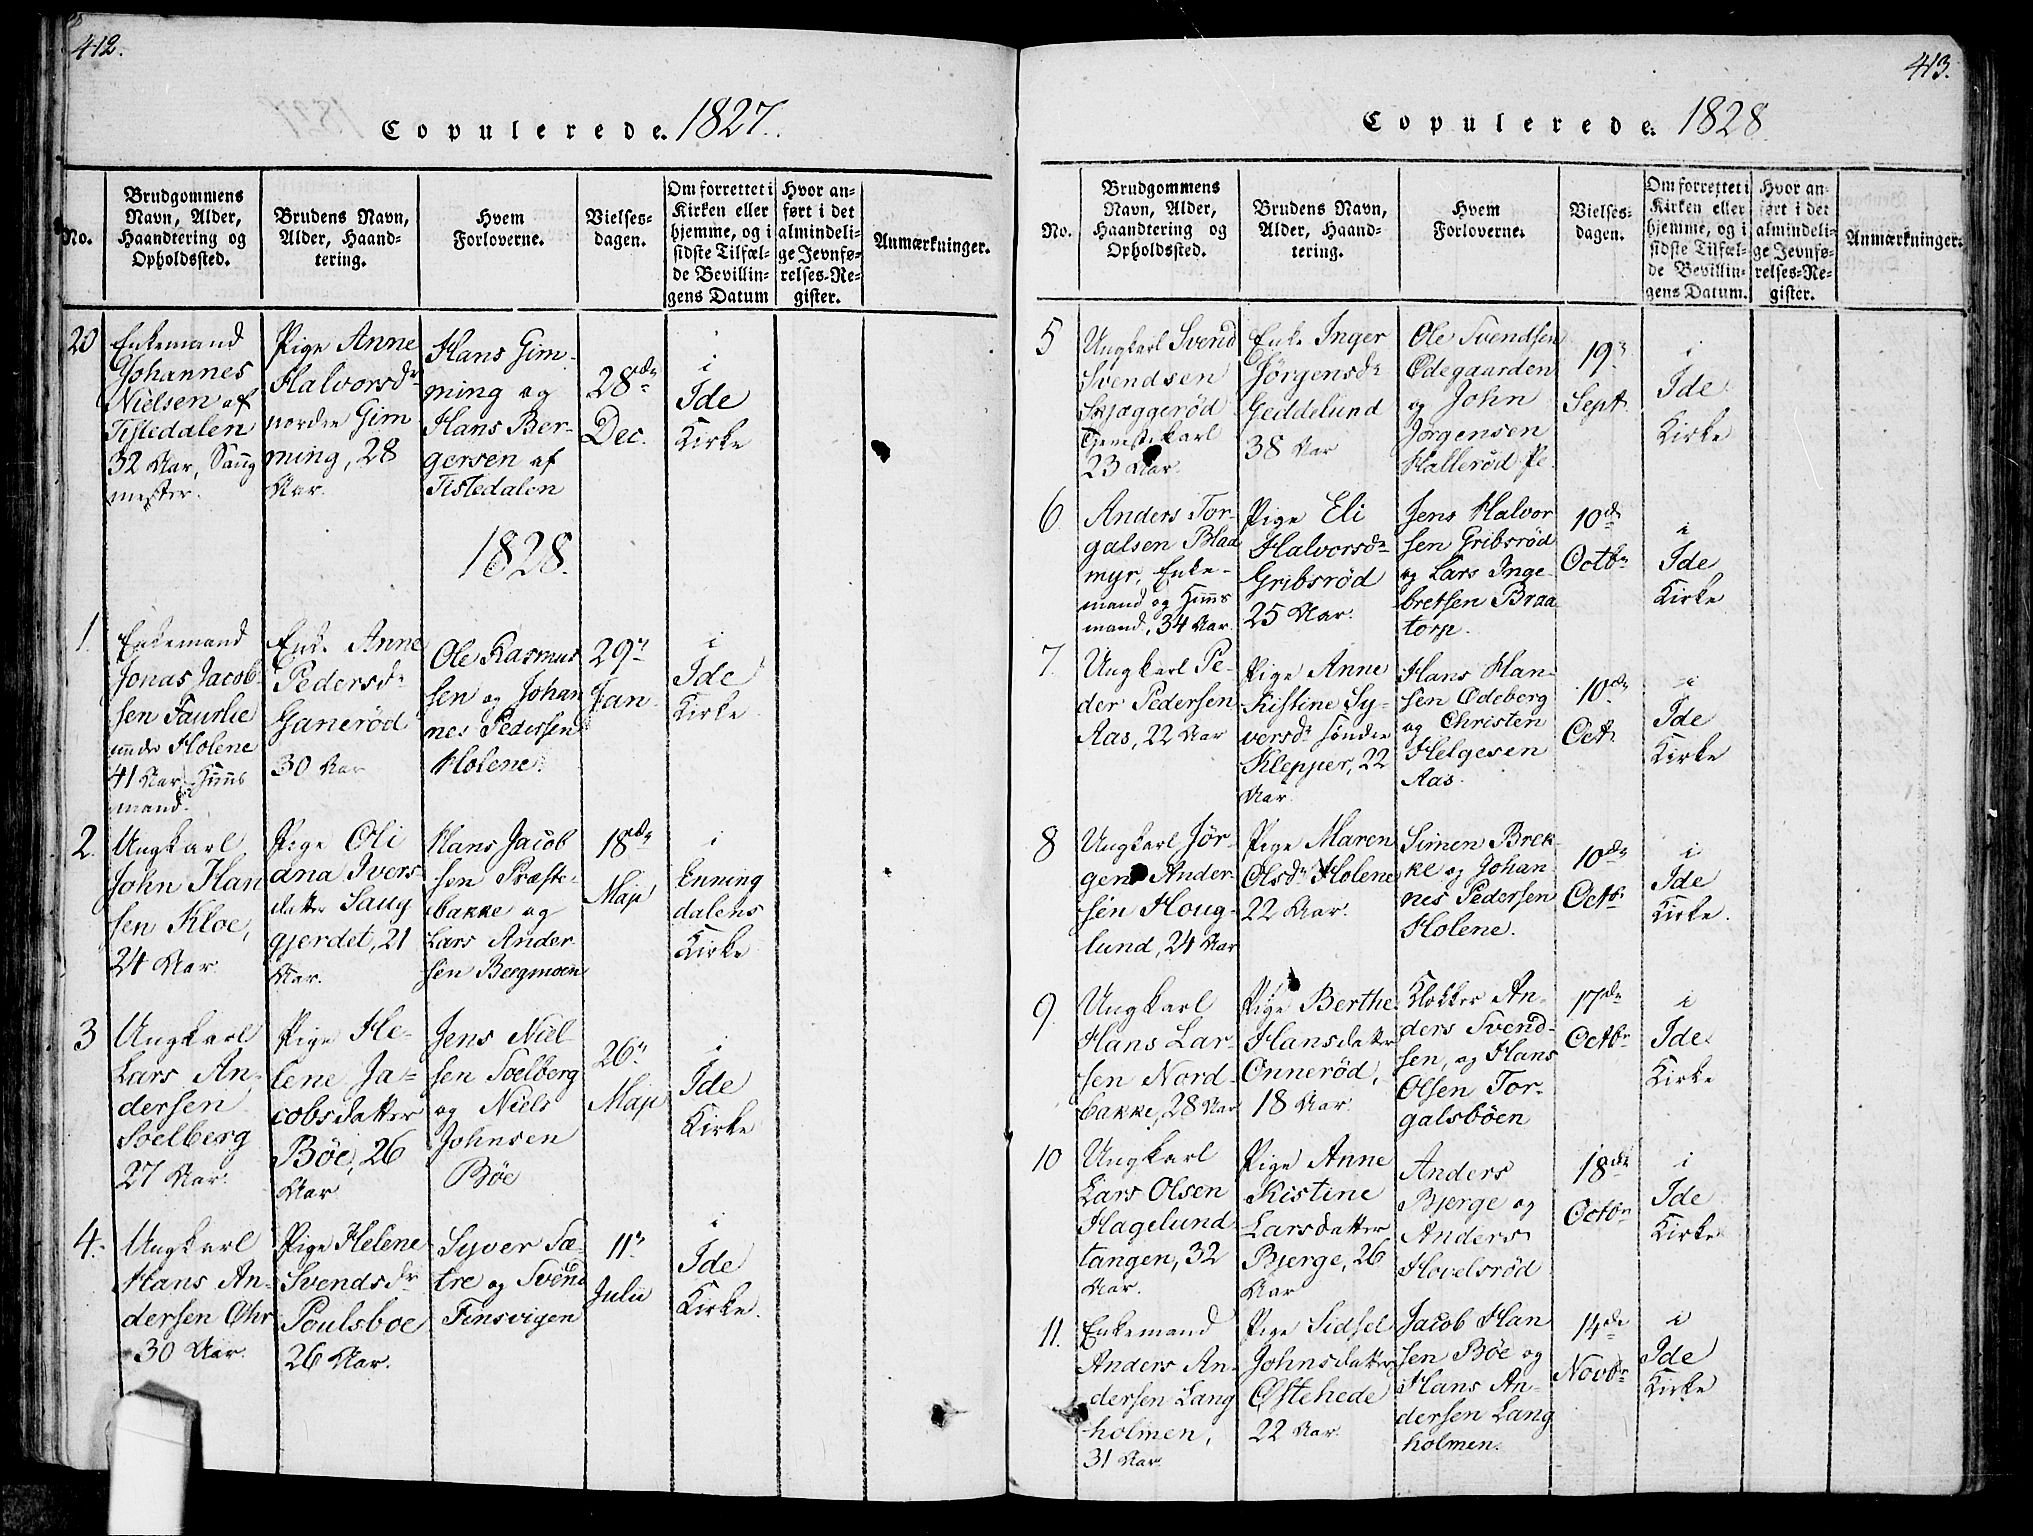 412.
Copulerede. 1827.
No.
Brudgommens
Navn, Alder,
Haandtering og
Opholdssted.
Brudens Navn,
Alder, Haand-
tering.
Hvem
Forloverne.
Vielses-
dagen.
Om forrettet i
Kirken eller
hjemme, og i
sidste Tilfæl-
de Bevillin-
gens Datum
Hvor an-
ført i det
almindeli-
ge Jevnfø-
relses-Re-
gister.
Anmærkninger.
20
Enkemand
Johannes
Nielsen af
Tistedalen
32 Aar, Saug
mester.
Pige Anne
Halvorsdr
nordre Gim
ming, 28
Aar.
Hans Gim-
ming og
Hans Ber-
gersen af
Tistedalen
28de
Dec.
i
Ide
Kirke
1828.
1.
Enkemand
Jonas Jacob-
sen Faurlie
under Holene
41 Aar, Huus
mand.
Enke Anne
Pedersdr
Ganerød
30 Aar
Ole Rasmus
sen og Johan
nes Pedersen
Holene.
29
Jan.
i
Ide
Kirke
2.
Ungkarl
John Han
sen Kloe,
24 Aar
Pige Oli
ana Ivers
datter Saug
gjerdet, 21
Aar.
Hans Jacob
sen Præste-
bakke og
Lars Ander
sen Bergmoen
18de
Maji
i
Enning
dalens
Kirke
3
Ungkarl
Lars An-
dersen
Soelberg
27 Aar.
Pige He-
lene Ja-
cobsdatter
Böe, 26
Aar
Jens Niel
sen Soelberg
og Niels
Johnsen
Böe
26
Maji
i
Ide
Kirke
4.
Ungkarl
Hans An-
dersen Øhr
30 Aar.
Pige Helene
Svendsdr
Poulsboe
26 Aar.
Syver Sæ-
tre og Svend
Finsvigen
11
Julii
i
Ide
Kirke.
413.
Copulerede. 1828.
No.
Brudgommens
Navn, Alder,
Haandtering og
Opholdssted.
Brudens Navn,
Alder, Haand-
tering.
Hvem
Forloverne.
Vielses-
dagen.
Om forrettet i
Kirken eller
hjemme, og i
sidste Tilfæl-
de Bevillin-
gens Datum.
Hvor an-
ført i det
almindeli-
ge Jevnfø-
relses-Re-
gister.
Anmærkninger.
5
Ungkarl Svend
Svendsen
Skjæggerød
Tjenestekarl
23 Aar.
Enke Inger
Jørgensdr
Geddelund
38 Aar
Ole Svendsen
Ødegaarden
og John
Jørgensen
Hallerød
19
Sept.
i
Ide
Kirke
6
Anders Tor-
galsen Blaa
myr, Enke-
mand og Huus
mand, 34 Aar.
Pige Eli
Halvorsdr
Gribsrød
25 Aar.
Jens Halvor
sen Gribsrød
og Lars Inge-
bretsen Braa
torp.
10de
Octbr
i
Ide
Kirke
7.
Ungkarl Pe-
der Pedersen
Aas, 22 Aar
Pige Anne
Kistine Sy-
versdr søndre
Klepper, 22
Aar.
Hans Han-
sen Ødeberg
og Christen
Helgesen
Aas.
10de
Oct.
i
Ide
Kirke
8
Ungkarl Jør-
gen Ander-
sen Houg-
lund, 24 Aar
Pige Maren
Olsdr Holene
22 Aar.
Simen Brek-
ke og Johan
nes Pedersen
Holene.
10de
Octb.
i
Ide
Kirke.
9.
Ungkarl
Hans Lar-
sen Nord-
bakke, 28 Aar
Pige Berthe
Hansdatter
Onnerød,
18 Aar.
Klokker An-
ders Svend-
sen, og Hans
Olsen Tor-
galsböen
17de
Octbr
i
Ide
Kirke
10
Ungkarl
Lars Olsen
Hagelund-
tangen, 32
Aar.
Pige Anne
Kistine
Larsdatter
Bjerge, 26
Aar
Anders
Bjerge og
Anders
Hovelsrød
18de
Octbr
i
Ide
Kirke
11.
Enkemand
Anders An-
dersen Lang
holmen,
31 Aar.
Pige Sidsel
Johnsdatter
Østehede
22 Aar.
Jacob Han
sen Böe og
Hans An-
dersen Lang
holmen.
14de
Novbr
i
Ide
Kirke